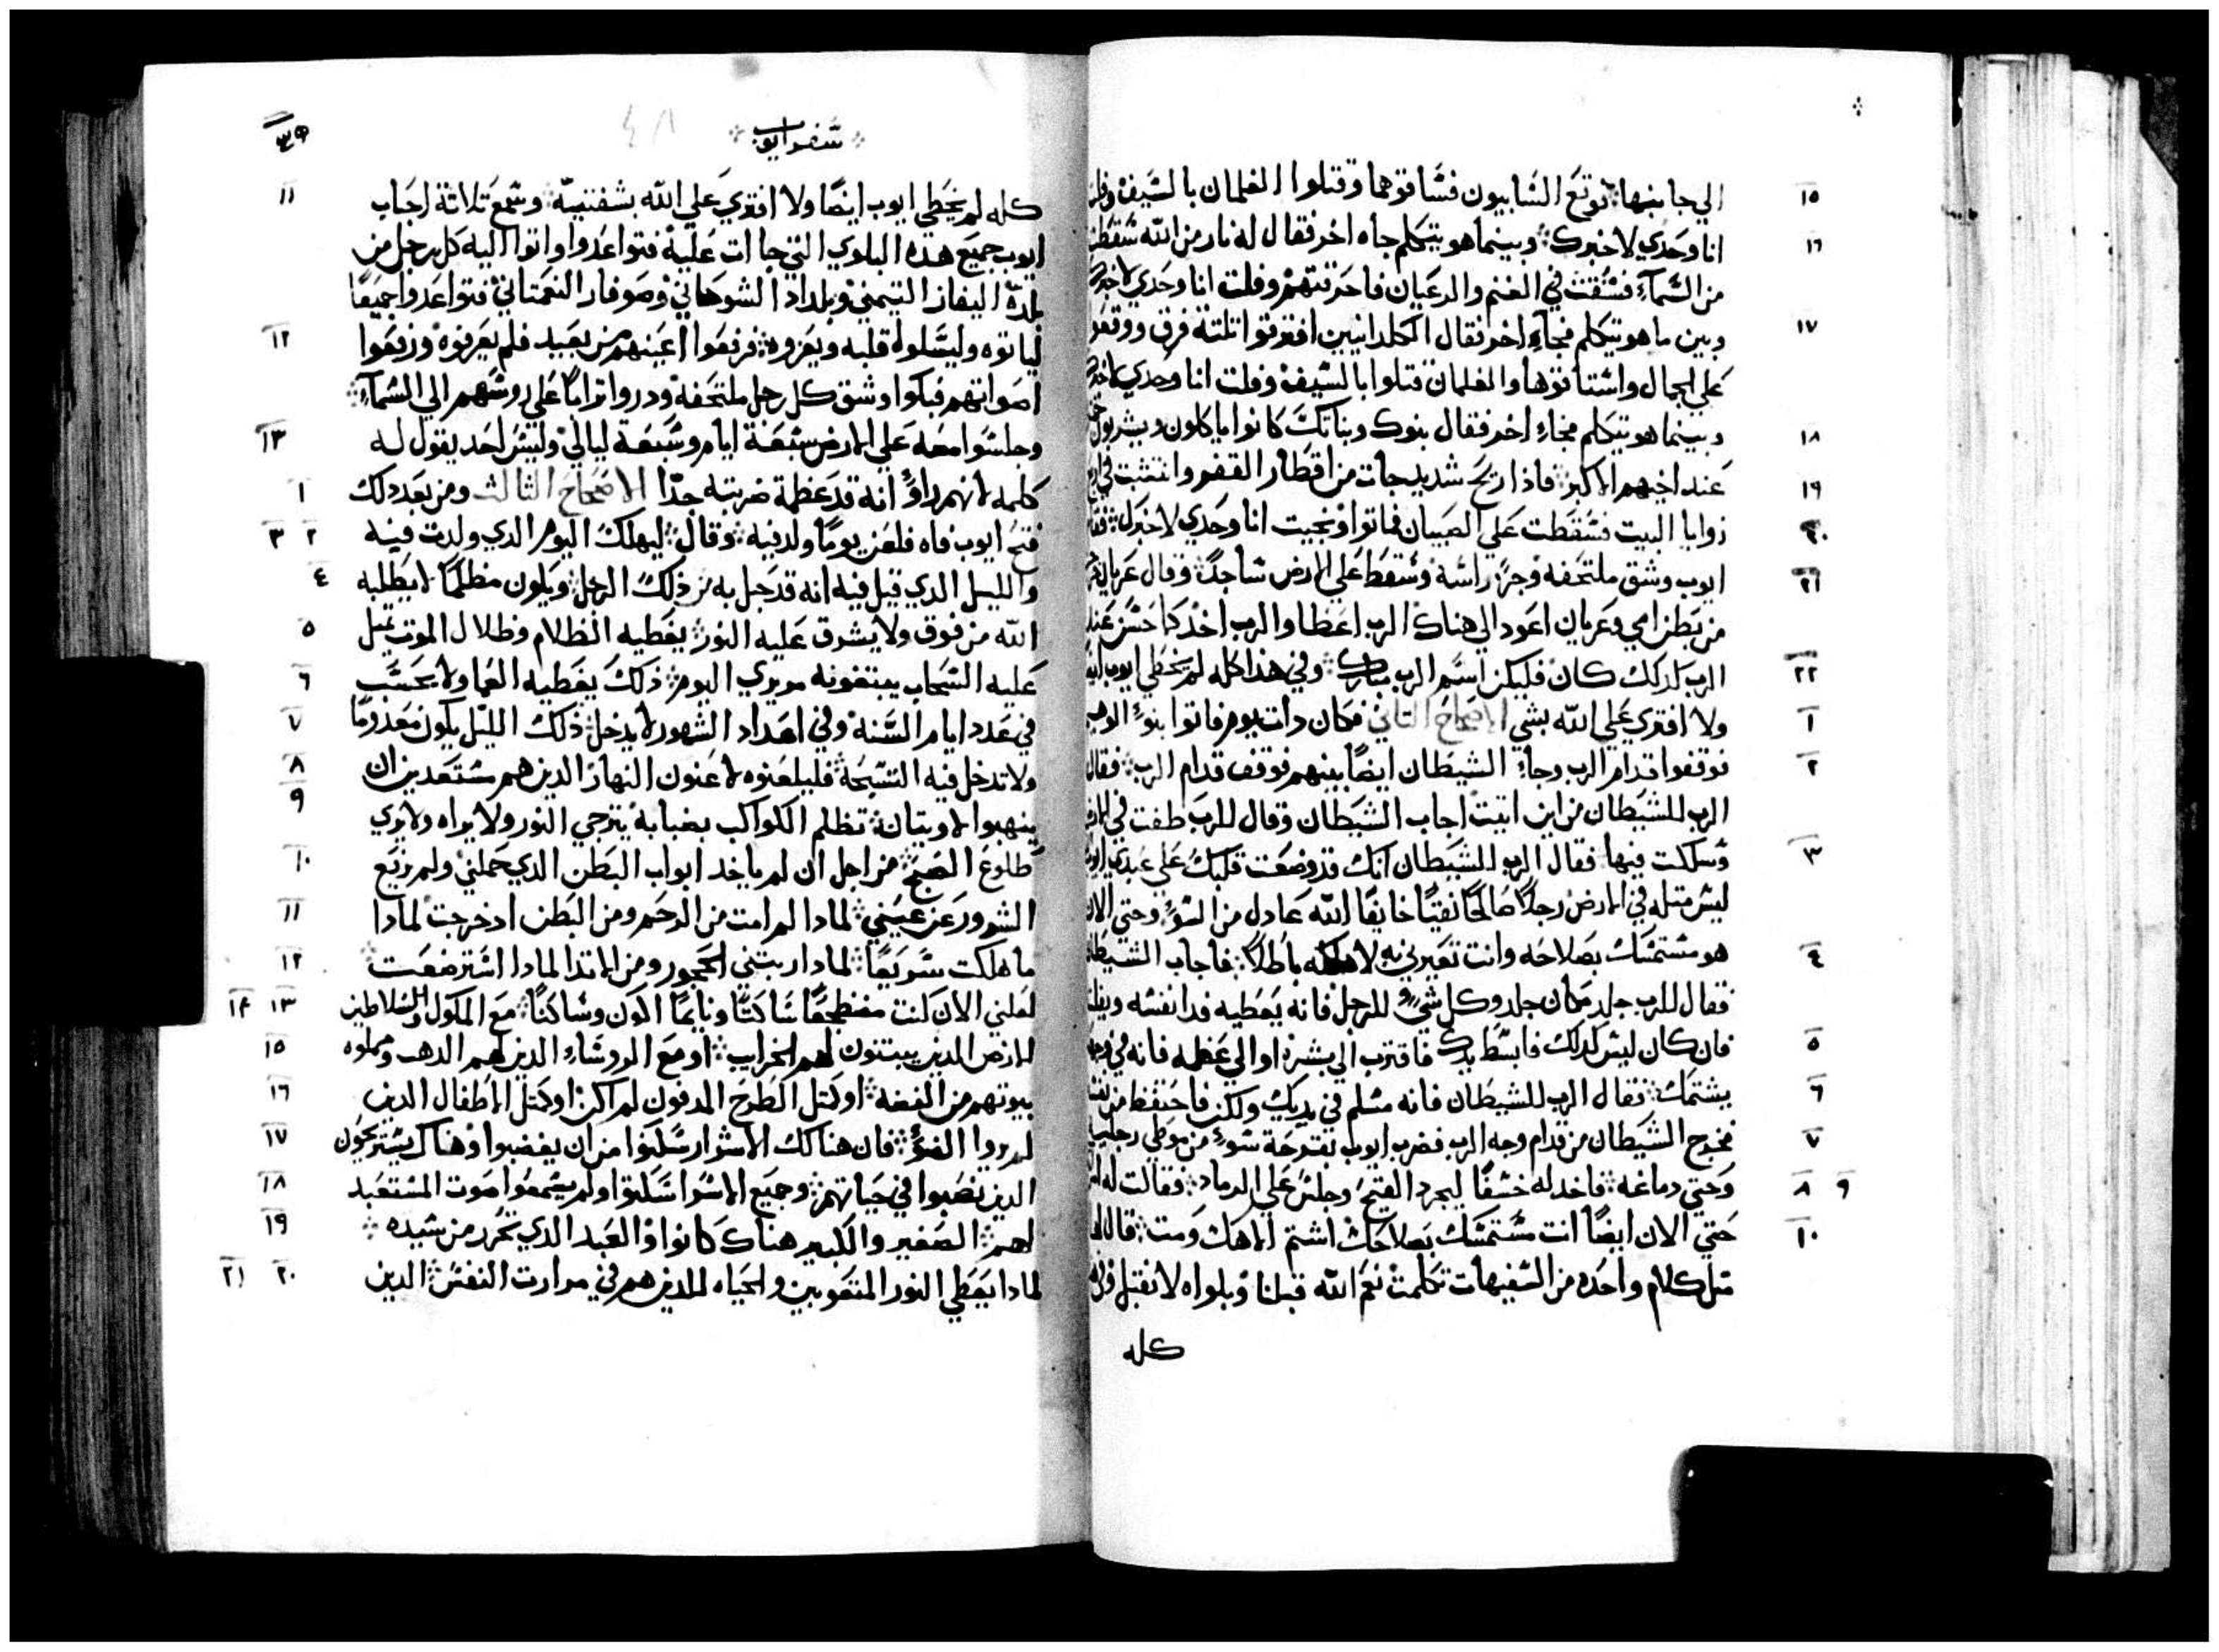 ١٥ الي جانبها فوقع الشابيون فشاقوهما وقتلوا الغلمان بالشيف وفلت
١٦ انا وحدي لاخبرك وبينما هو يتكلم جاه اخر فقال له نار من الله شقطت
من الشمآء فشقت في الغنم والرعيان فاحرقتهم وفلت انا وحدي لاخبرك
١٧ وبين ما هو يتكلم فجاء اخر فقال الكلدانيين افترقوا تلتة فرق ووقعو
علي الجمال واشتاقوها والغلمان قتلوا بالشيف وفلت انا وحدي لاخبرك
١٨ وبينما هو يتكلم فجاء اخر فقال بنوك وبناتك كانوا ياكلون ويشربون
١٩ عند اخيهم الاكبر فاذا ريح شديد جات من اقطار القفر وانتشبت في
٢٠ زوايا البيت فشقطت علي الصبيان فماتوا ونجيت انا وحدي لاخبرك فقام
٢١ ايوب وشق ملتحفه وجز راشه وشقط علي الارض شاجدًا وقال عريان
من بطن امي وعريان اعود الي هناك الرب اعطا والرب اخد كما حشن عند
٢٢ الرب كدلك كان فليكن اشم الرب مبارك وفي هذا كله لم يخطي ايوب
١ ولا افتري علي الله بشي الاصحاح التاني فكان دات يوم فاتوا بنوء
٢ فوقفوا قدام الرب وجاء الشيطان ايضًا بينهم فوقف قدام الرب فقال
الرب للشيطان من اين اتيت اجاب الشيطان وقال للرب طفت في الارض
٣ وشلكت فيها فقال الرب للشيطان انك قد وضعت قلبك علي عبدي ايوب
ليش متله في الارض رجلًا صالحًا نقيًا خايفًا الله عادل من الشوء وحتي الان
٤ هو مشتمشك بصلاحه وانت تغيرني به لاهلكه باطلًا فاجاب الشيطان
فقال للرب جلد مكان جلد وكل شي للرجل فانه يعطيه فدا نفشه
٥ فان كان ليش كدلك فابشط يدك فاقترب الي بشره او الي عظمه فانه في وجهك
٦ يشتمك فقال الرب للشيطان فانه مشلم في يديك ولكن فاحتفظ من
٧ فخرج الشيطان من قدام وجه الرب فضرب ايوب بقرحة شوء من موطي رجليه
٩ ٨ وحتي دماغه فاخد له خشفًا ليجرد القيح وجلش علي الرماد فقالت له
١٠ حتي الان ايضًا انت مشتمشك بصلاحك اشتم الاهك ومت قال لها
متل كلام واحده من الشفيهات تكلمت نعم الله قبلنا وبلواه لا نقبل وفي
كله
شفر ايوب
١١ كله لم يخطي ايوب ايضًا ولا افتري علي الله بشفتيه وشمع تلاتة احباب
ايوب جميع هذه البلوي التي جاات علية فتواعدوا واتوا اليه كل رجل من
بلده اليفاز التيمني وبلداد الشوحاني وصوفار النعمتاني فتواعدوا جميعًا
١٢ لياتوه وليشلوا قلبه ويعزوه فرفعوا اعينهم من بعيد فلم يعرفوه ورفعوا
اصواتهم فبكوا وشق كل رجل ملتحفه ودروا ترابًا علي روشهم الي الشمآء
١٣ وجلشوا معه علي الارض شبعة ايام وشبعة ليالي وليش احد يقول له
١ كلمه لانهم راوٌ انه قد عظمة ضربته جدًا الاصحاح التالت ومن بعد دلك
٢ ٣ فتح ايوب فاه فلعن يومًا ولد فيه وقال ليهلك اليوم الدي ولدت فيه
٤ والليل الدي قيل فيه انه قد حبل به من ذلك الرجل ويكون مظلمًا لا يطلبه
٥ الله من فوق ولا يشرق عليه النور يغطيه الظلام وظلال الموت يميل
٦ عليه الشحاب يبتغونه مريري اليوم ذلك يغطيه العما ولا يحشب
٧ في عدد ايام الشنة وفي اعداد الشهور لا يدخل ذلك الليل يكون
٨ ولا تدخل فيه التشبحة فليلعنوه لاعنون النهار الدين هم مشتعدين ان
٩ ينهبوا لاويتان تظلم الكواكب بضبابة يترجي النور ولا يراه ولا يري
١٠ طلوع الصبح من اجل ان لم ياخد ابواب البطن الدي حملني ولم
١١ الشرور عن عيني لمادا لم امت من الرحم ومن البطن اد خرجت لمادا
١٢ ما هلكت شريعًا لمادا ربتني الحجور ومن الاتدا لمادا اشترضعت
١٣ ١٤ لعلني الان كنت مضطجعًا شاكتًا ونايمًا اكون وشاكنًا مع الملوك والشلاطين
١٥ الارض الدين يبتنون لهم الخراب او مع الروشاء الدين لهم الدهب ومملوه
١٦ بيوتهم من الفضة او كمتل الطرح المدفون لم اكن او كمتل الاطفال الدين
١٧ لم يروا الضوء فان هنالك الاشرار شلبوا من ان يغضبوا وهناك يشتريحون
١٨ الدين نصبوا في حياتهم وجميع الاشرا شلبوا ولم يشمعوا صوت المشتعبد
١٩ لهم الصغير والكبير هناك كانوا والعبد الدي تحرر من شيده
٢٠ ٢١ لمادا يعطي النور المتعوبين والحياه للدين هم في مرارت النفش الدين